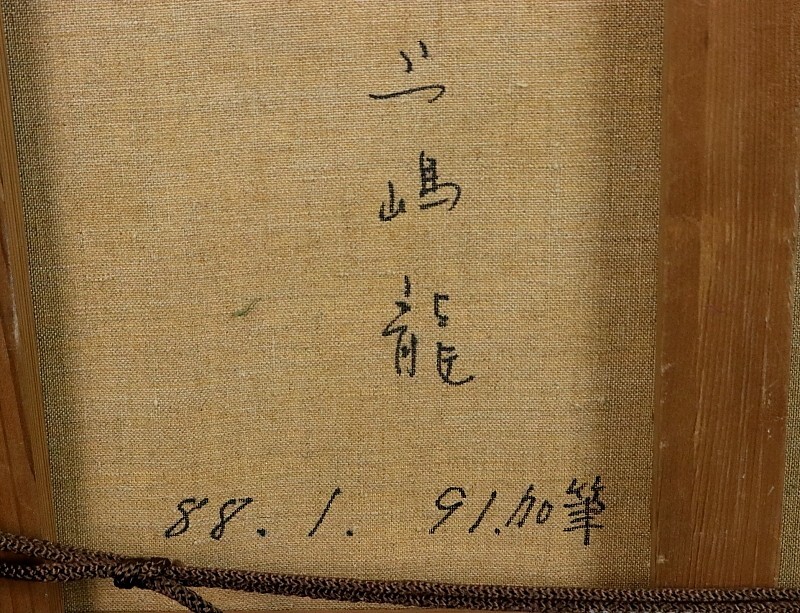 嶋龍
88.1. 91.加筆